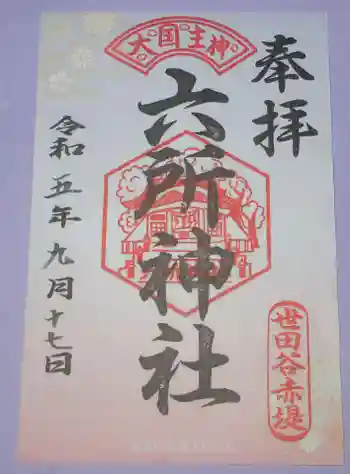 奉拝
大国主神
六所神社
世田谷赤堤
令和五年九月十七日